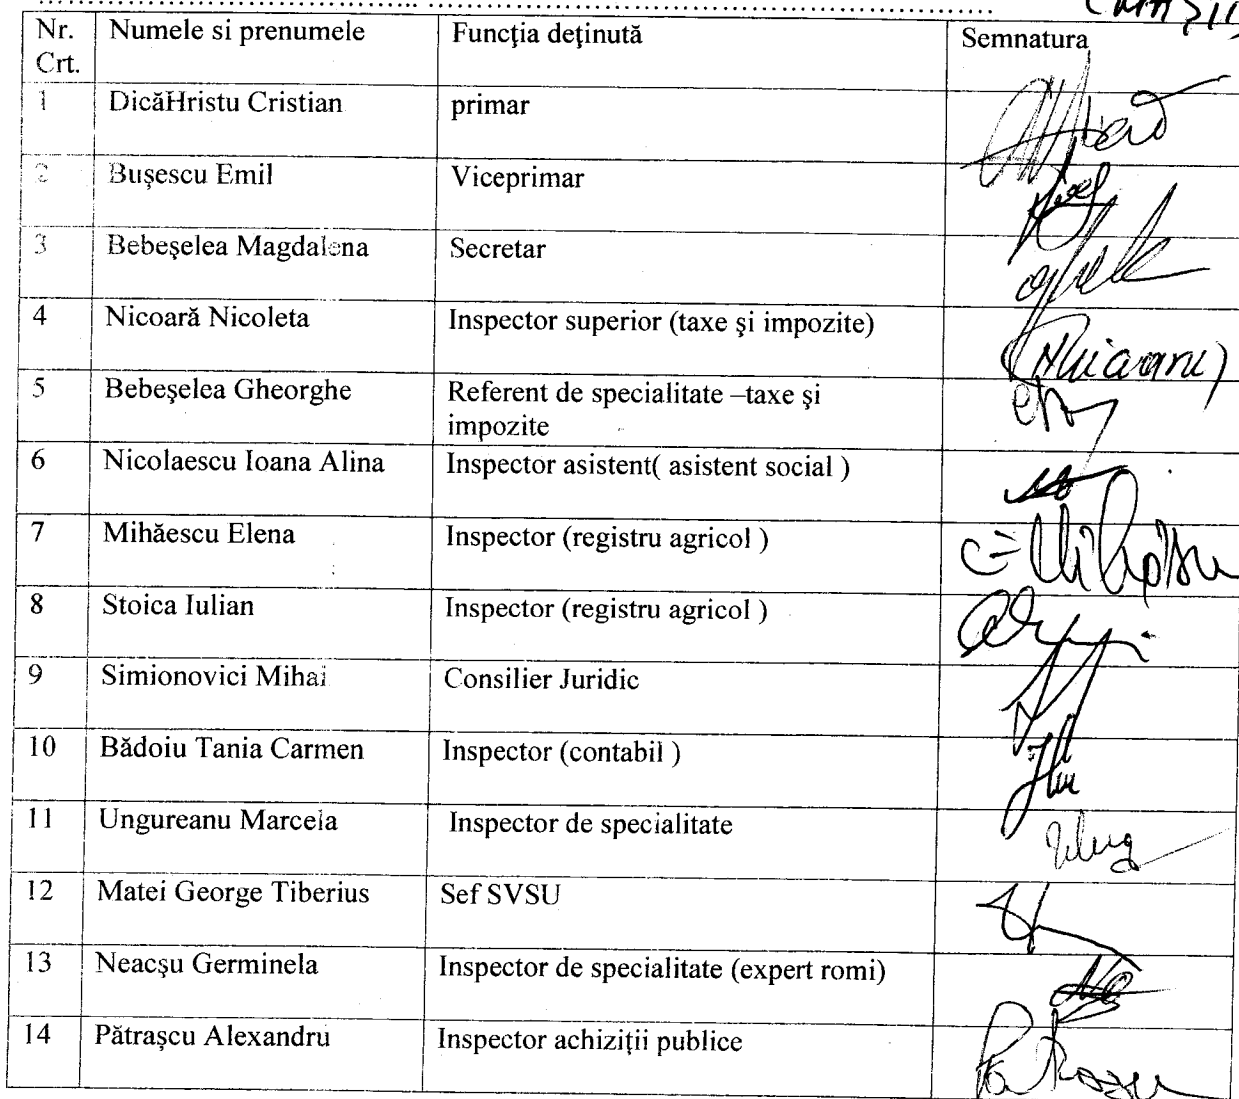 Nr. Crt. Numele si prenumele Funcția deținută Semnatura
1 DicăHristu Cristian primar
2 Bușescu Emil Viceprimar
3 Bebeșelea Magdalena Secretar
4 Nicoară Nicoleta Inspector superior (taxe și impozite)
5 Bebeșelea Gheorghe Referent de specialitate –taxe și
impozite
6 Nicolaescu Ioana Alina Inspector asistent( asistent social )
7 Mihăescu Elena Inspector (registru agricol )
8 Stoica Iulian Inspector (registru agricol )
9 Simionovici Mihai Consilier Juridic
10 Bădoiu Tania Carmen Inspector (contabil )
11 Ungureanu Marcela Inspector de specialitate
12 Matei George Tiberius Sef SVSU
13 Neacșu Germinela Inspector de specialitate (expert romi)
14 Pătrașcu Alexandru Inspector achiziții publice